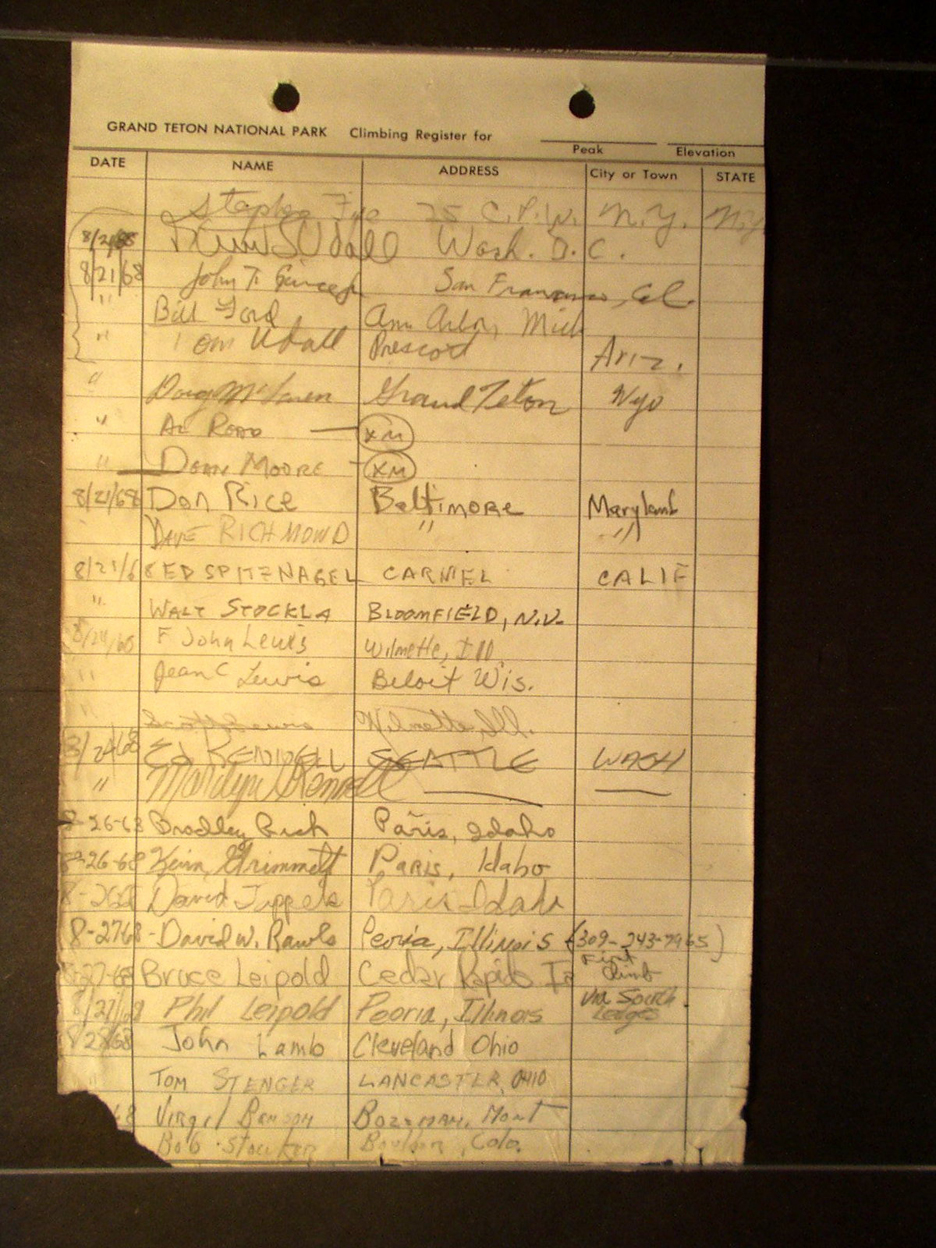 GRAND TETON NATIONAL PARK Climbing Register for
Peak Elevation
DATE NAME ADDRESS City or Town STATE
Stephen 25 C.P.W. N.Y. N.Y
Udall Wash. D.C.
8/21/68 John San Francisco, Cal.
" Bill Ford Ann Arbor, Mich
" Tom Udall Prescott Ariz.
" Doug Grand Teton Wyo
" Al Read XM
" Dean Moore XM
8/21/68 Don Rice Baltimore Maryland
" Dave RICHMOND " "
8/21/68 ED SPITZNAGEL CARMEL CALIF
" WALT STOCKLA BLOOMFIELD, N.V.
F John Lewis Wilmette, Ill
" Jean C Lewis Beloit Wis.
" Scott Lewis Wilmette Ill.
8/24/68 Ed KENNELL SEATTLE WASH
" Marilyn Kennell
8-26-68 Bradley Rich Paris, Idaho
8-26-68 Kevin Grimmett Paris, Idaho
David Paris Idaho
8-27-68 David W. Rawls Peoria, Illinois (309-243-7965)
8-27-68 Bruce Leipold Cedar Rapids Ia First Climb
8/27/68 Phil Leipold Peoria, Illinois via South Ledges
8/28/68 John Lamb Cleveland Ohio
" TOM STENGER LANCASTER, OHIO
68 Virgil Bozeman, Mont
Bob Boulder, Colo.